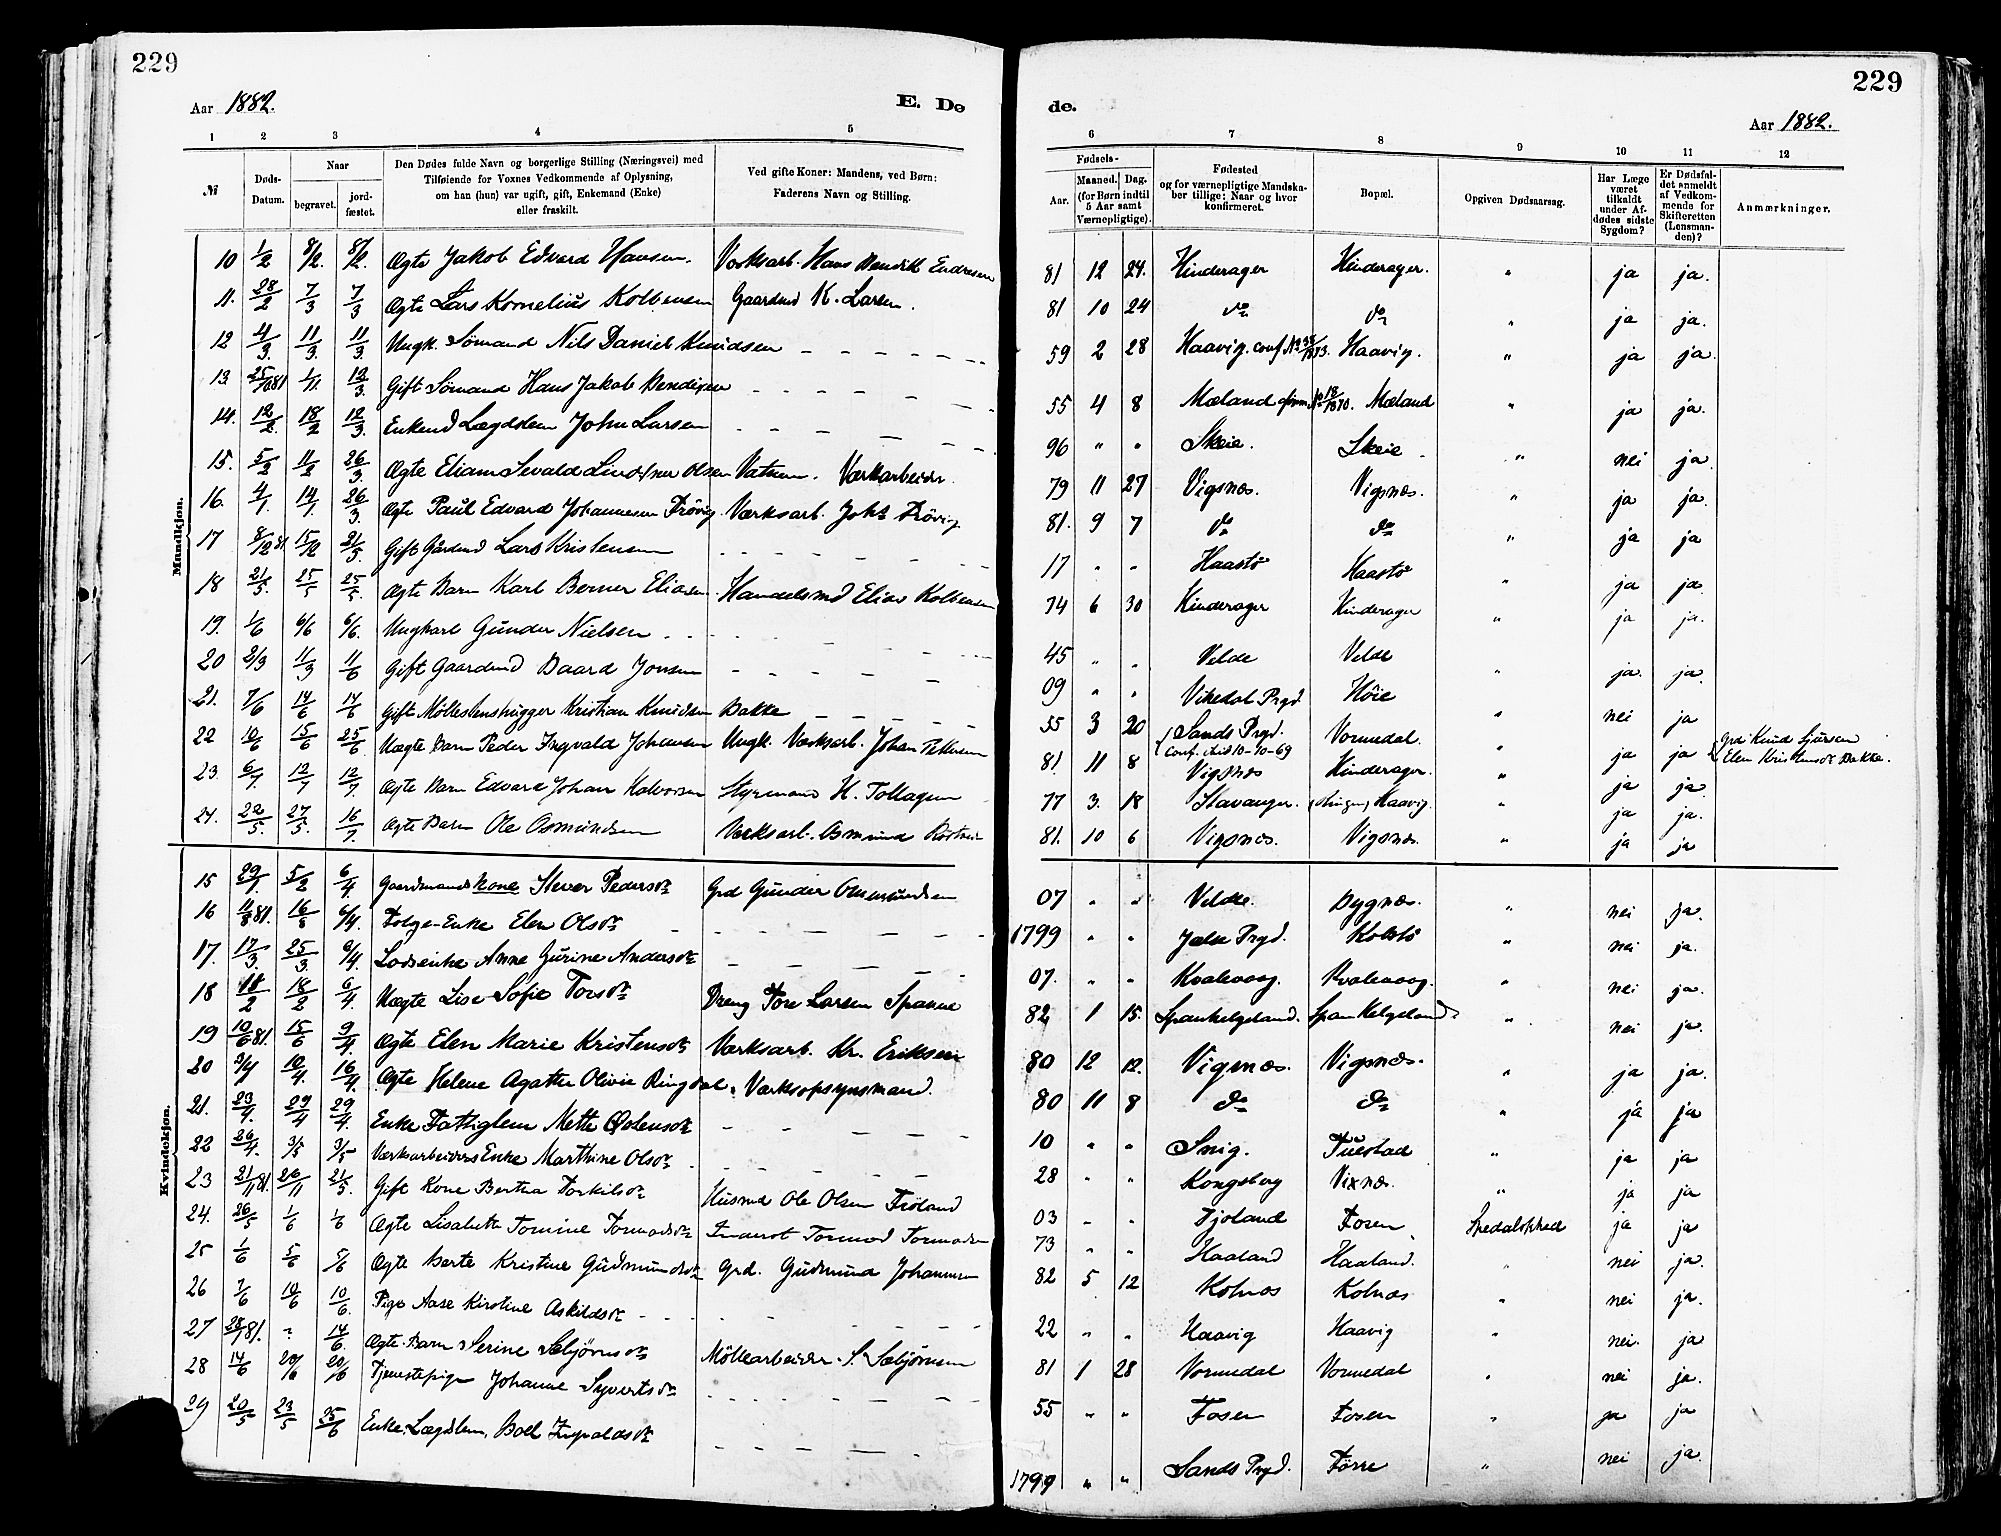 229
Aar 1882.
E. Dø
1 2 3 4 5
№
Døds-Datum.
Naar
begravet. jordfæstet.
Den Dødes fulde Navn og borgerlige Stilling (Næringsvei) med
Tilføiende for Voxnes Vedkommende af Oplysning,
om han (hun) var ugift, gift, Enkemand (Enke)
eller fraskilt.
Ved gifte Koner: Mandens, ved Børn:
Faderens Navn og Stilling.
Mandkjøn.
10 1/2 8/2. 8/2. Ægte Jakob Edvard Hansen. Værksarb. Hans Bendik Endresen
11. 28/2 7/3 7/3 Ægte Lars Kornelius Kolbensen Gaardmd K. Larsen.
12 4/3. 11/3. 11/3. Ungk. Sømand Nils Daniel Knudsen
13 25/1081 1/11. 12/3. Gift Sømand Hans Jakob Bendixen
14. 12/2. 18/2 12/3. Enkemd Lægdslem John Larsen
15. 5/2 11/2 26/3. Ægte Eliam Sevald Olsen Vatnem. Værksarbeider.
16. 4/1. 14/1 26/3. Ægte Paul Edvard Johannesen Frövig Værksarb. Johs Frövig
17 8/1281. 15/12 21/5 Gift Gårdmd Lars Kristensen
18 21/5. 25/5 25/5. Ægte Barn Karl Berner Eliasen. Handelsmd Elias Kolbensen
19. 1/6 6/6 6/6. Ungkarl Gunder Nielsen
20 2/3 11/3 11/6 Gift Gaardmd Baard Jonsen
21. 7/6 14/6 14/6 Gift Møllestenshugger Kristian Knudsen Bakke
22 10/6 15/6 25/6 Uægte Barn Peder Ingvald Johansen Ungk. Værksarb. Johan Pettersen
23. 6/7. 12/7 12/7. Ægte Barn Edvard Johan Halvorsen Styrmand H. Tollagsen
24. 22/5. 27/5. 16/7. Ægte Barn Ole Osmundsen Værksarb. Osmund
Kvindekjøn.
15 29/1. 5/2 6/4. Gaardmands Kone Siever Pedersdr Grd Gunder Ommundsen
16 11/881. 16/8 6/4. Folge-Enke Elen Olsdr
17. 17/3 25/3 6/4. Lodsenke Anne Gurine Andersdr
18 11/2 18/2 6/4. Uægte Lise Sofie Torsdr Dreng Tore Larsen Spanne
19 10/681. 15/6 9/4. Ægte Elen Marie Kristensdr Værksarb. Kr. Eriksen
20 3/4 10/4. 16/4. Ægte Helene Agathe Olivie Ringdal. Værksopsynsmand.
21. 23/4. 29/4 29/4. Enke Fattiglem Mette Østensdr
22 26/4. 3/5 3/5 Værksarbeiders Enke Marthine Olsdr
23 21/1181. 26/11 21/5. Gift Kone Bertha Torkilsdr Husmd Ole Olsen Fröland
24. 26/5 1/6 1/6 Ægte Lisabeth Tomine Tormodsdr Inderst Tormod Tormodsen
25 1/6 5/6 5/6 Ægte Berte Kristine Gudmundsdr Grd. Gudmund Johannesen
26 7/6 10/6 10/6. Pige Aase Kirstine Askildsdr
27 28/781. - 14/6. Ægte Barn Serine Sebjørnsdr Möllearbeider S. Sebjørnsen
28 14/6 20/6 20/6 Tjenestepige Johanne Syvertsdr
29 20/5 23/5 25/6 Enke. Lægdslem, Boel Ingvaldsdr
229
de.
Aar 1882.
6 7 8 9 10 11 12
Fødsels-
Aar. Maaned. Dag.
(for Børn indtil
5 Aar samt
Værnepligtige).
Fødested
og for værnepligtige Mandska-
ber tillige: Naar og hvor
konfirmeret.
Bopæl.
Opgiven Dødsaarsag.
Har Læge
været
tilkaldt
under Af-
dødes sidste
Sygdom?
Er Dødsfal-
det anmeldt
af Vedkom-
mende for
Skifteretten
(Lensman-
den)?
Anmærkninger.
81 12 24. Hinderager Hinderager. " ja ja.
81 10 24 do do " ja ja.
59 2 28 Haavig. conf. Haavig. " ja ja.
55 4 8 Mæland Mæland " ja ja.
96 " " Skeie. Skeie. " nei ja.
79 11 27 Vigsnæs. Vigsnæs. " ja ja.
81. 9 7 do do " ja ja
17 " " Haastö Haastö " ja ja.
74 6 30 Hinderager Hinderager " ja ja.
45 " " Velde Velde " ja. ja.
09 " " Vikedal Prgd Höie " nei ja
55 3 20 Sands Prgd. Vormedal. " ja ja
Conf. 10-10-69
Grd. Knud Sjursen
Elen Bakke.
81. 11 8 Vigsnæs Hinderager. " ja ja.
77 3. 18 Stavanger. Haavig. " ja ja.
81. 10 6 Vigsnæs. Vigsnæs. " ja ja
07 " " Velde. Bygnæs. " nei ja.
1799 " " Jælse Prgd. Kolstö " nei ja.
07. " " Kvalevaag. Kvalevaag. " nei ja.
82 1 15. Spanhelgeland. Spanhelgeland. " nei ja.
80 12 12. Vigsnæs. Vigsnæs. " ja ja.
80 11 8 do do " ja ja
10 " " Snig. Tuestad " ja ja
28 " " Kongsberg Vixnæs. " ja ja
03 " " Fjoland Fosen Spedalskhed ja ja
73 " " Haaland Haaland. " nei ja.
82 5 12 Kolnæs Kolnæs " nei ja.
22 " " Haavig Haavig " nei. ja
81 1 28 Vormedal Vormedal " nei ja.
55 " " Fosen Fosen " ja ja
1799 " " Sands Prgd. Førre " nei ja.